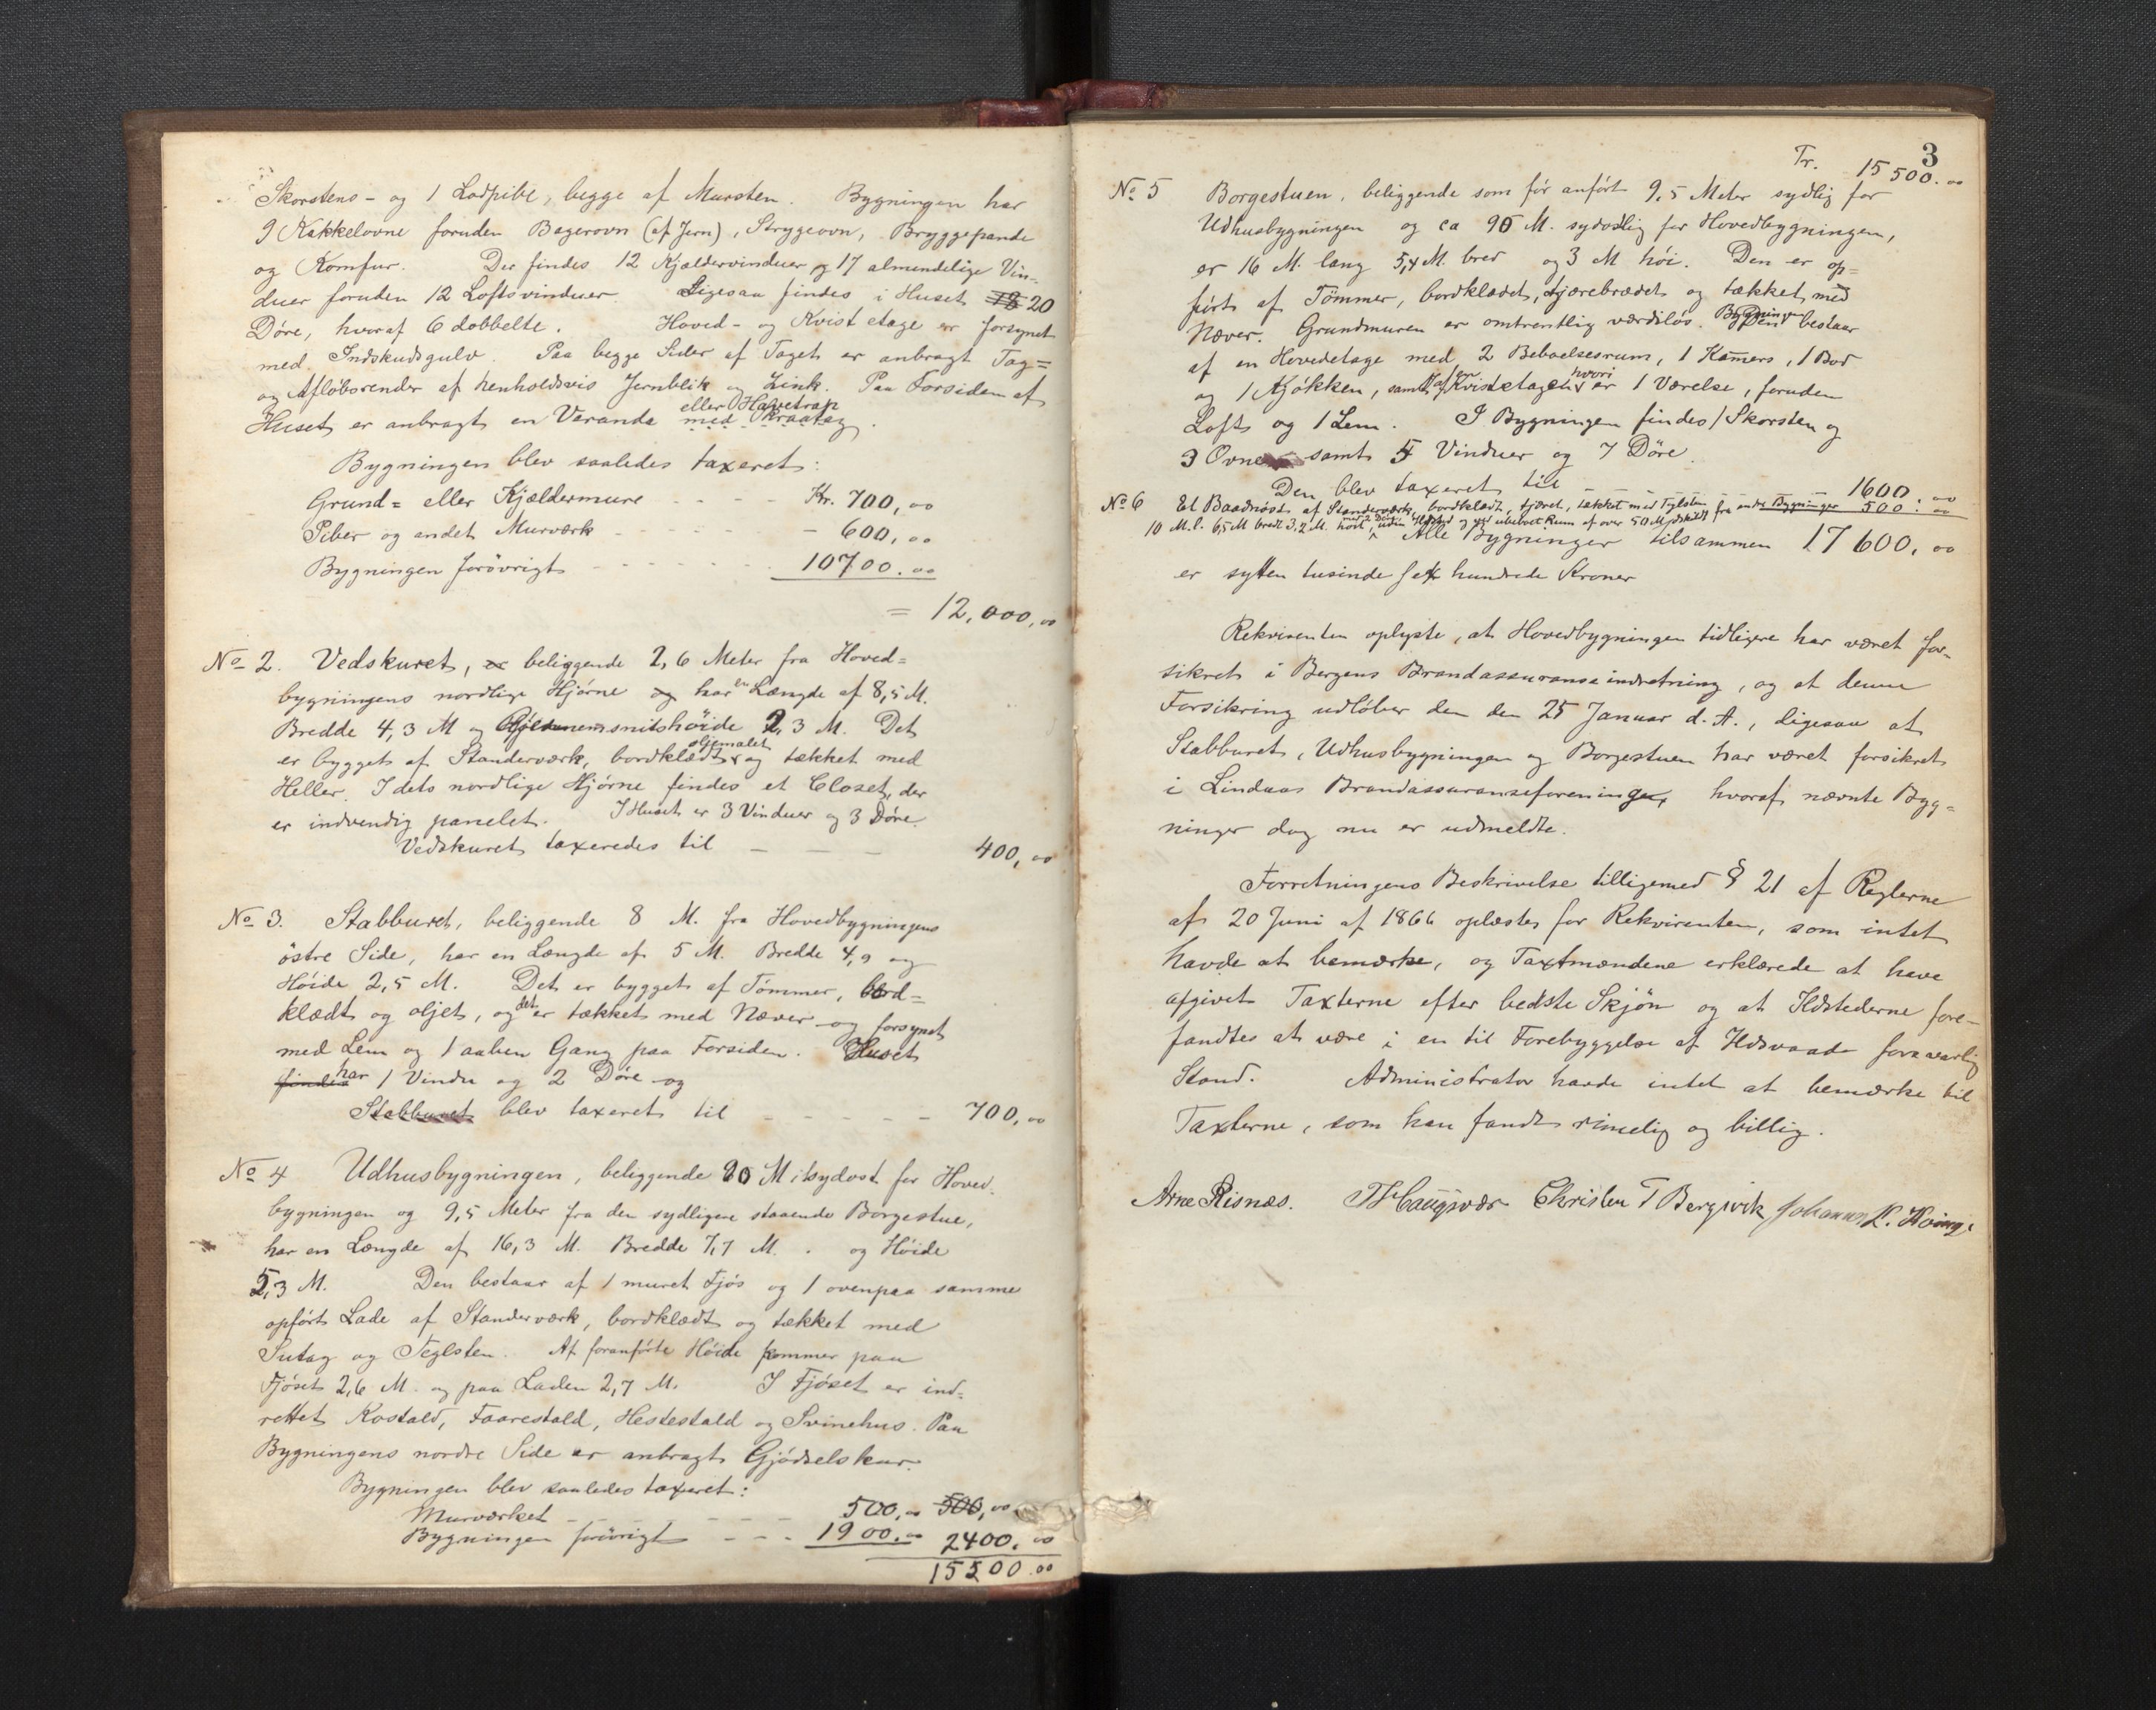 Skorstens- og 1 Lodpibe, begge af Mursten. Bygningen har
9 Kakkelovne foruden Bagerovn (af Jern), Strygeovn, Bryggepande
og Komfur. Der findes 12 Kjældervinduer og 17 almindelige Vin-
duer foruden 12 Loftsvinduer. Ligesaa findes i Huset 20
Døre, hvoraf 6 dobbelte. Hoved- og Kvistetage er forsynet
med Indskudsgulv. Paa begge Sider af Taget er anbragt Tag=
og Afløbsrender af henholdsvis Jernblik og Zink. Paa Forsiden af
eller Havetrap
Huset er anbragt en Veranda med Straatag.
Bygningen blev saaledes taxeret:
Grund= eller Kjældermure - - - - Kr. 700,00
Piber og andet Murværk - - - 600,00
Bygningen forøvrigt - - - - - - 10700.00
= 12,000,00
No 2. Vedskuret, beliggende 2,6 Meter fra Hoved=
bygningens nordlige Hjørne og har en Længde af 8,5 M.
Bredde 4,3 M og Gjennemsnitshøide 2,3 M. Det
er bygget af Standerværk, bordklædt oljemalet og tækket med
Heller. I dets nordlige Hjørne findes et Closet, der
er indvendig panelet. I Huset er 3 Vinduer og 3 Døre.
Vedskuret taxeredes til - - - 400,00
No 3. Stabburet, beliggende 8 M. fra Hovedbygningens
östre Side, har en Længde af 5 M. Bredde 4,9 og
Höide 2,5 M. Det er bygget af Tömmer, bord=
klædt og oljet, og det er tækket med Næver og forsynet
med Lem og 1 aaben Gang paa Forsiden. Huset
findes har 1 Vindu og 2 Døre og
Stabburet blev taxeret til - - - - - 700,00
No 4 Udhusbygningen, beliggende 80 M i sydost for Hoved-
bygningen og 9,5 Meter fra den sydligere staaende Borgestue,
har en Længde af 16,3 M. Bredde 7,7 M. og Höide
5,3 M. Den bestaar af 1 muret Fjös og 1 ovenpaa samme
opført Lade af Standerværk, bordklædt og tækket med
Sutag og Teglsten. Af foranförte Höide kommer paa
Fjöset 2,6 M. og paa Laden 2,7 M. I Fjöset er ind=
rettet Kostald, Faarestald, Hestestald og Svinehus. Paa
Bygningens nordre Side er anbragt Gjödselskur.
Bygningen blev saaledes taxeret:
Murværket - - - - - - 500,00 500,00
Bygningen forövrigt - - - 1900.00 2400.00
15500.00
3
Tr. 15500.00
No 5 Borgestuen, beliggende som før anført 9,5 Meter sydlig for
Udhusbygningen og ca 90 M. sydostlig for Hovedbygningen,
er 16 M. lang 5,4 M. bred og 3 M höi. Den er op=
fört af Tömmer, bordklædet, tjærebrædet og tækket med
Næver. Grundmuren er omtrentlig værdilös. Bygningen bestaar
af en Hovedetage med 2 Beboelsesrum, 1 Kammers, 1 Bod
og 1 Kjøkken, samt af en Kvistetage hvori er 1 Værelse, foruden
Loft og 1 Lem. I Bygningen findes 1 Skorsten og
3 Ovne samt 5 Vinduer og 7 Döre.
Den blev taxeret til - - - - 1600.00
No 6 Et Baadnöst af Standerværk, bordklædt, tjæret, tækket med Teglsten fra andre Bygninger 500.00
10 M. l. 6,5 M bredt 3,2 M. höit, uden Ildsted
Alle Bygninger tilsammen 17600,00
er sytten tusinde sex hundrede Kroner
Rekvirenten oplyste, at Hovedbygningen tidligere har været for-
sikret i Bergens Brandassuranseindretning, og at denne
Forsikring udløber den den 25 Januar d. A., ligesaa at
Stabburet, Udhusbygningen og Borgestuen har været forsikret
i Lindaas Brandassuranseforening, hvoraf nævnte Byg=
ninger dog nu er udmeldte.
Forretningens Beskrivelse tilligemed § 21 af Reglerne
af 20 Juni af 1866 oplæstes for Rekvirenten, som intet
havde at bemærke, og Taxtmændene erklærede at have
afgivet Taxterne efter bedste Skjön og at Ildstederne fore-
fandtes at være i en til Forebyggelse af Ildsvaade forsvarlig
Stand. Administrator havde intet at bemærke til
Taxterne, som han fandt rimelig og billig.
Arne Risnæs. Christen T Bergsvik Johannes